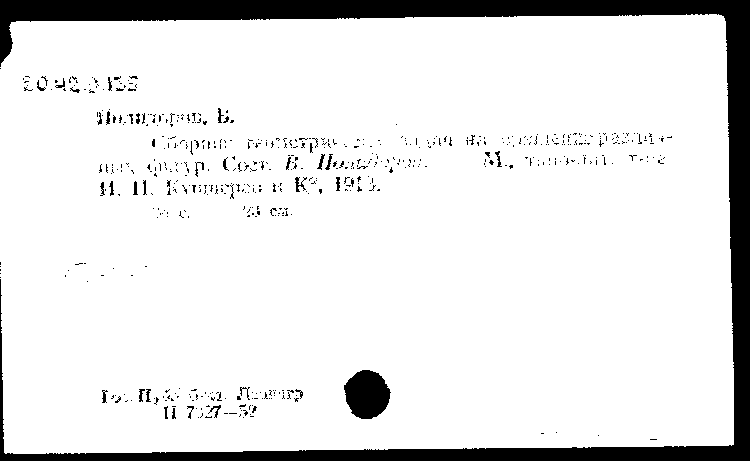 20.42.9.135
Полидоров, В.
Сборник геометрических задач на деление различ-
ных фигур. Сост. В. Полидоров. М., типо-лит. т-ва
И. Н. Кушнерев и К°, 1913.
с. 23 см.
Гос. П, б-ка. Ленингр
П 7327—52